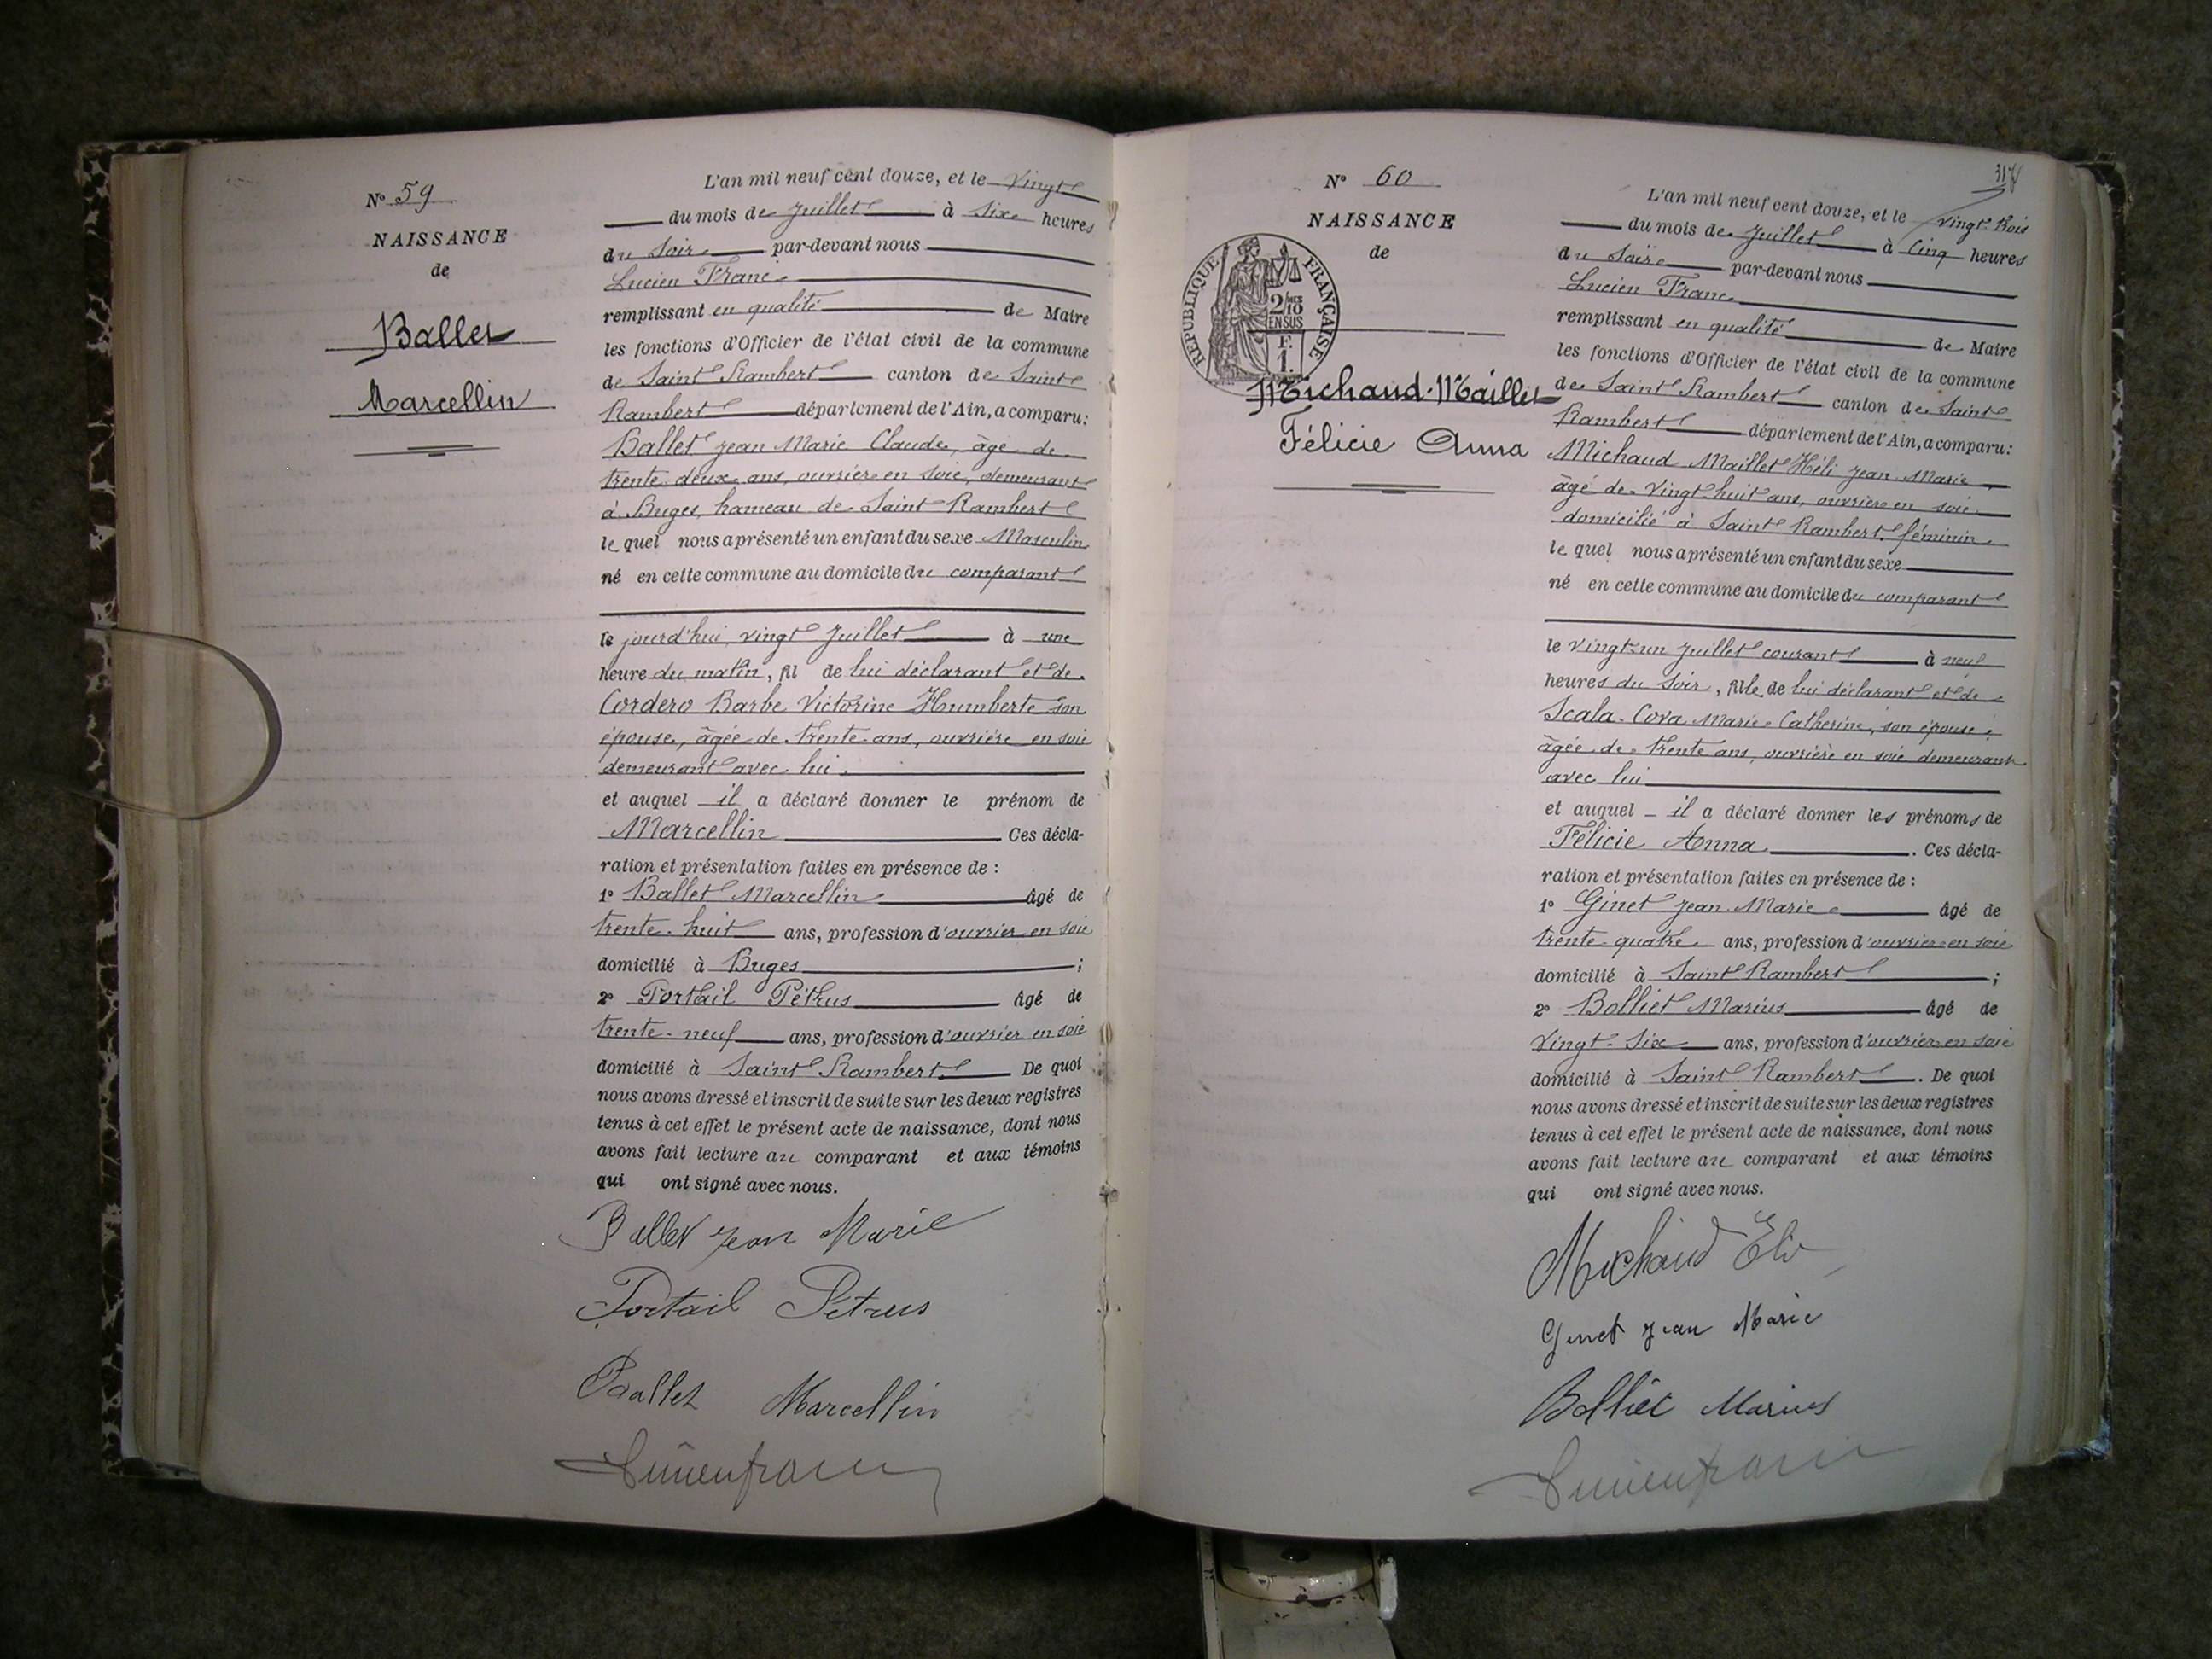 N° 59
NAISSANCE
de
Ballet
Marcellin
L'an mil neuf cent douze, et le vingt
du mois de Juillet à six heures
du soir par-devant nous
Lucien Franc
remplissant en qualité de Maire
les fonctions d'Officier de l'état civil de la commune
de Saint Rambert canton de Saint
Rambert département de l'Ain, a comparu:
Ballet Jean Marie Claude, âgé de
trente deux ans, ouvrier en soie, demeurant
à Buges, hameau de Saint Rambert
le quel nous a présenté un enfant du sexe Masculin
né en cette commune au domicile du comparant
le jourd'hui, vingt Juillet à une
heure du matin, fil de lui déclarant et de
Cordero Barbe Victorine Humberte son
épouse, âgée de trente ans, ouvrière en soie
demeurant avec lui.
et auquel il a déclaré donner le prénom de
Marcellin Ces décla-
ration et présentation faites en présence de :
1° Ballet Marcellin âgé de
trente-huit ans, profession d'ouvrier en soie
domicilié à Buges ;
2° Portail Pétrus âgé de
trente-neuf ans, profession d'ouvrier en soie
domicilié à Saint Rambert De quoi
nous avons dressé et inscrit de suite sur les deux registres
tenus à cet effet le présent acte de naissance, dont nous
avons fait lecture au comparant et aux témoins
qui ont signé avec nous.
Ballet Jean Marie
Portail Pétrus
Ballet Marcellin
Lucien franc
N° 60
NAISSANCE
de
REPUBLIQUE FRANÇAISE
2/10
EN SUS
F.
1.
Michaud-Maillet
Félicie Anna
L'an mil neuf cent douze, et le vingt-trois
du mois de Juillet à cinq heures
du soir par-devant nous
Lucien Franc
remplissant en qualité de Maire
les fonctions d'Officier de l'état civil de la commune
de Saint Rambert canton de Saint
Rambert département de l'Ain, a comparu:
Michaud Maillet Héli Jean Marie
âgé de vingt huit ans, ouvrier en soie
domicilié à Saint Rambert. féminin
le quel nous a présenté un enfant du sexe
né en cette commune au domicile du comparant
le vingt-un Juillet courant à neuf
heures du soir, fille de lui déclarant et de
Scala-Cova Marie Catherine, son épouse
âgée de trente ans, ouvrière en soie demeurant
avec lui
et auquel il a déclaré donner les prénoms de
Félicie Anna. Ces décla-
ration et présentation faites en présence de :
1° Ginet Jean-Marie âgé de
trente-quatre ans, profession d'ouvrier en soie
domicilié à Saint Rambert ;
2° Bolliet Marius âgé de
vingt-six ans, profession d'ouvrier en soie
domicilié à Saint Rambert. De quoi
nous avons dressé et inscrit de suite sur les deux registres
tenus à cet effet le présent acte de naissance, dont nous
avons fait lecture au comparant et aux témoins
qui ont signé avec nous.
Michaud Eli
Ginet Jean Marie
Bolliet Marius
Lucien franc